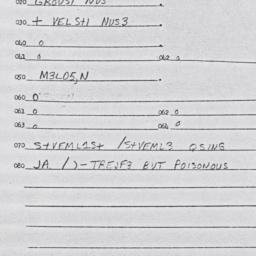 020 GROUSI NUS
030 + VELSHI NUS3
040 0
041 0 042 0
050 M3LO5,N
060 0
061 0 062 0
063 0 064 0
070 S+VEML1S+ /S+VEML3 QSING
080 JA. /)-TREJF3 BUT POISONOUS